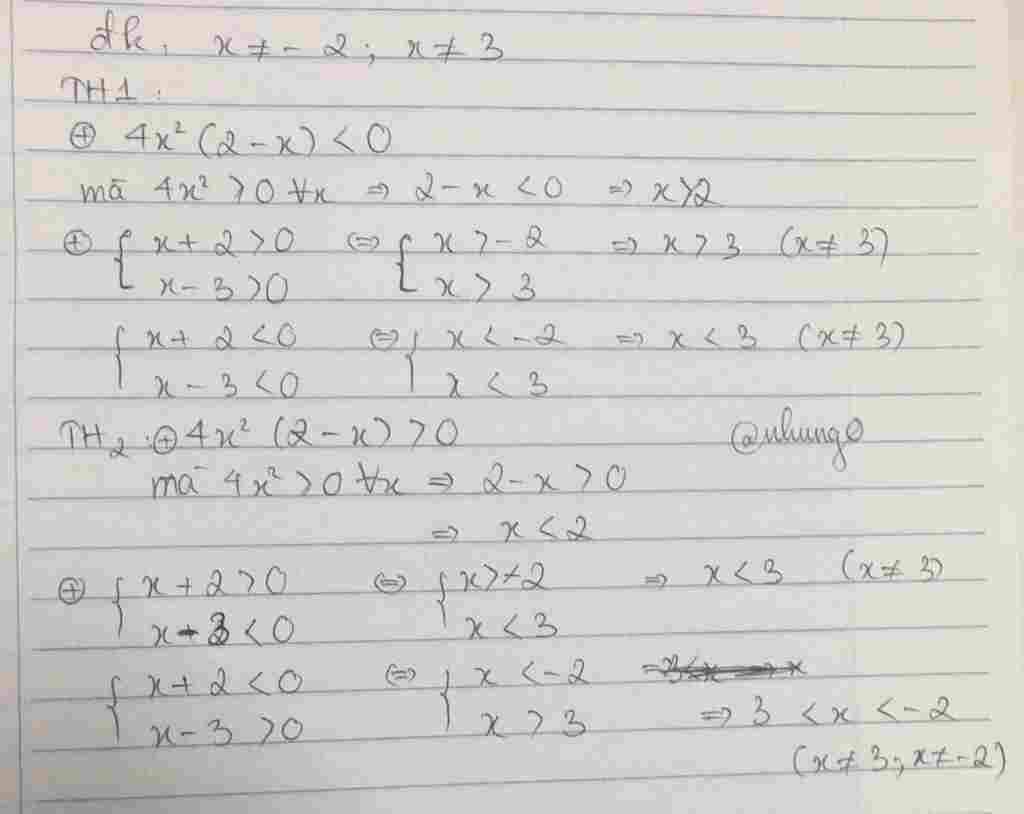 đk, x ≠ - 2; x ≠ 3
TH1:
⊕ 4x² (2 - x) < 0
mā 4x² > 0 ∀x ⇒ 2 - x < 0 ⇒ x > 2
⊕ { x + 2 > 0 ⇔ { x > - 2 ⇒ x > 3 (x ≠ 3)
x - 3 > 0 x > 3
{ x + 2 < 0 ⇔ { x < - 2 ⇒ x < 3 (x ≠ 3)
x - 3 < 0 x < 3
TH2: ⊕ 4x² (2 - x) > 0 @nhung0
mā 4x² > 0 ∀x ⇒ 2 - x > 0
⇒ x < 2
⊕ { x + 2 > 0 ⇔ { x > -2 ⇒ x < 3 (x ≠ 3)
x - 3 < 0 x < 3
{ x + 2 < 0 ⇔ { x < -2
x - 3 > 0 x > 3 ⇒ 3 < x < -2
(x ≠ 3; x ≠ -2)